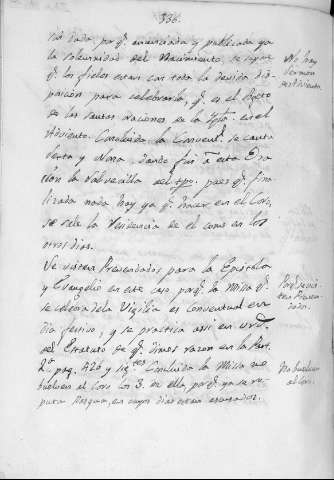 336.
sia dada, porq.^e anunciada y publicada ya
la solemnidad del Nacimiento, se supone
q.^e los fieles estan con toda la devida dis-
posición para celebrarla, q.^e es el efecto
de las santas oraciones de la Ygl.^a en el
Adviento. Concluida la Convent.^l se canta
Sexta y Nona, dando fin a esta
la
lizada nada hay ya q.^e hacer en el Coro,
se sale la Residencia de el como en los
otros dias.
Se visten Presentados para la Epistola
y Evangelio en este caso, porq.^e la Missa q.^e
se celebra de la Vigilia es Conventual en
dia festivo, y se practica assi en
del Estatuto de q.^e dimos razon en la Part.
2.^a pag. 426 y sig.^tes Concluida la Missa no
buelven al Coro los 3. de ella, porq.^e ya se re-
puta Pasqua, en cuyos dias estan escusados.
No hay
Sermon
de Adviento.
Porq.^e se vis-
ten Presen-
tados.
No buelven
al Coro.